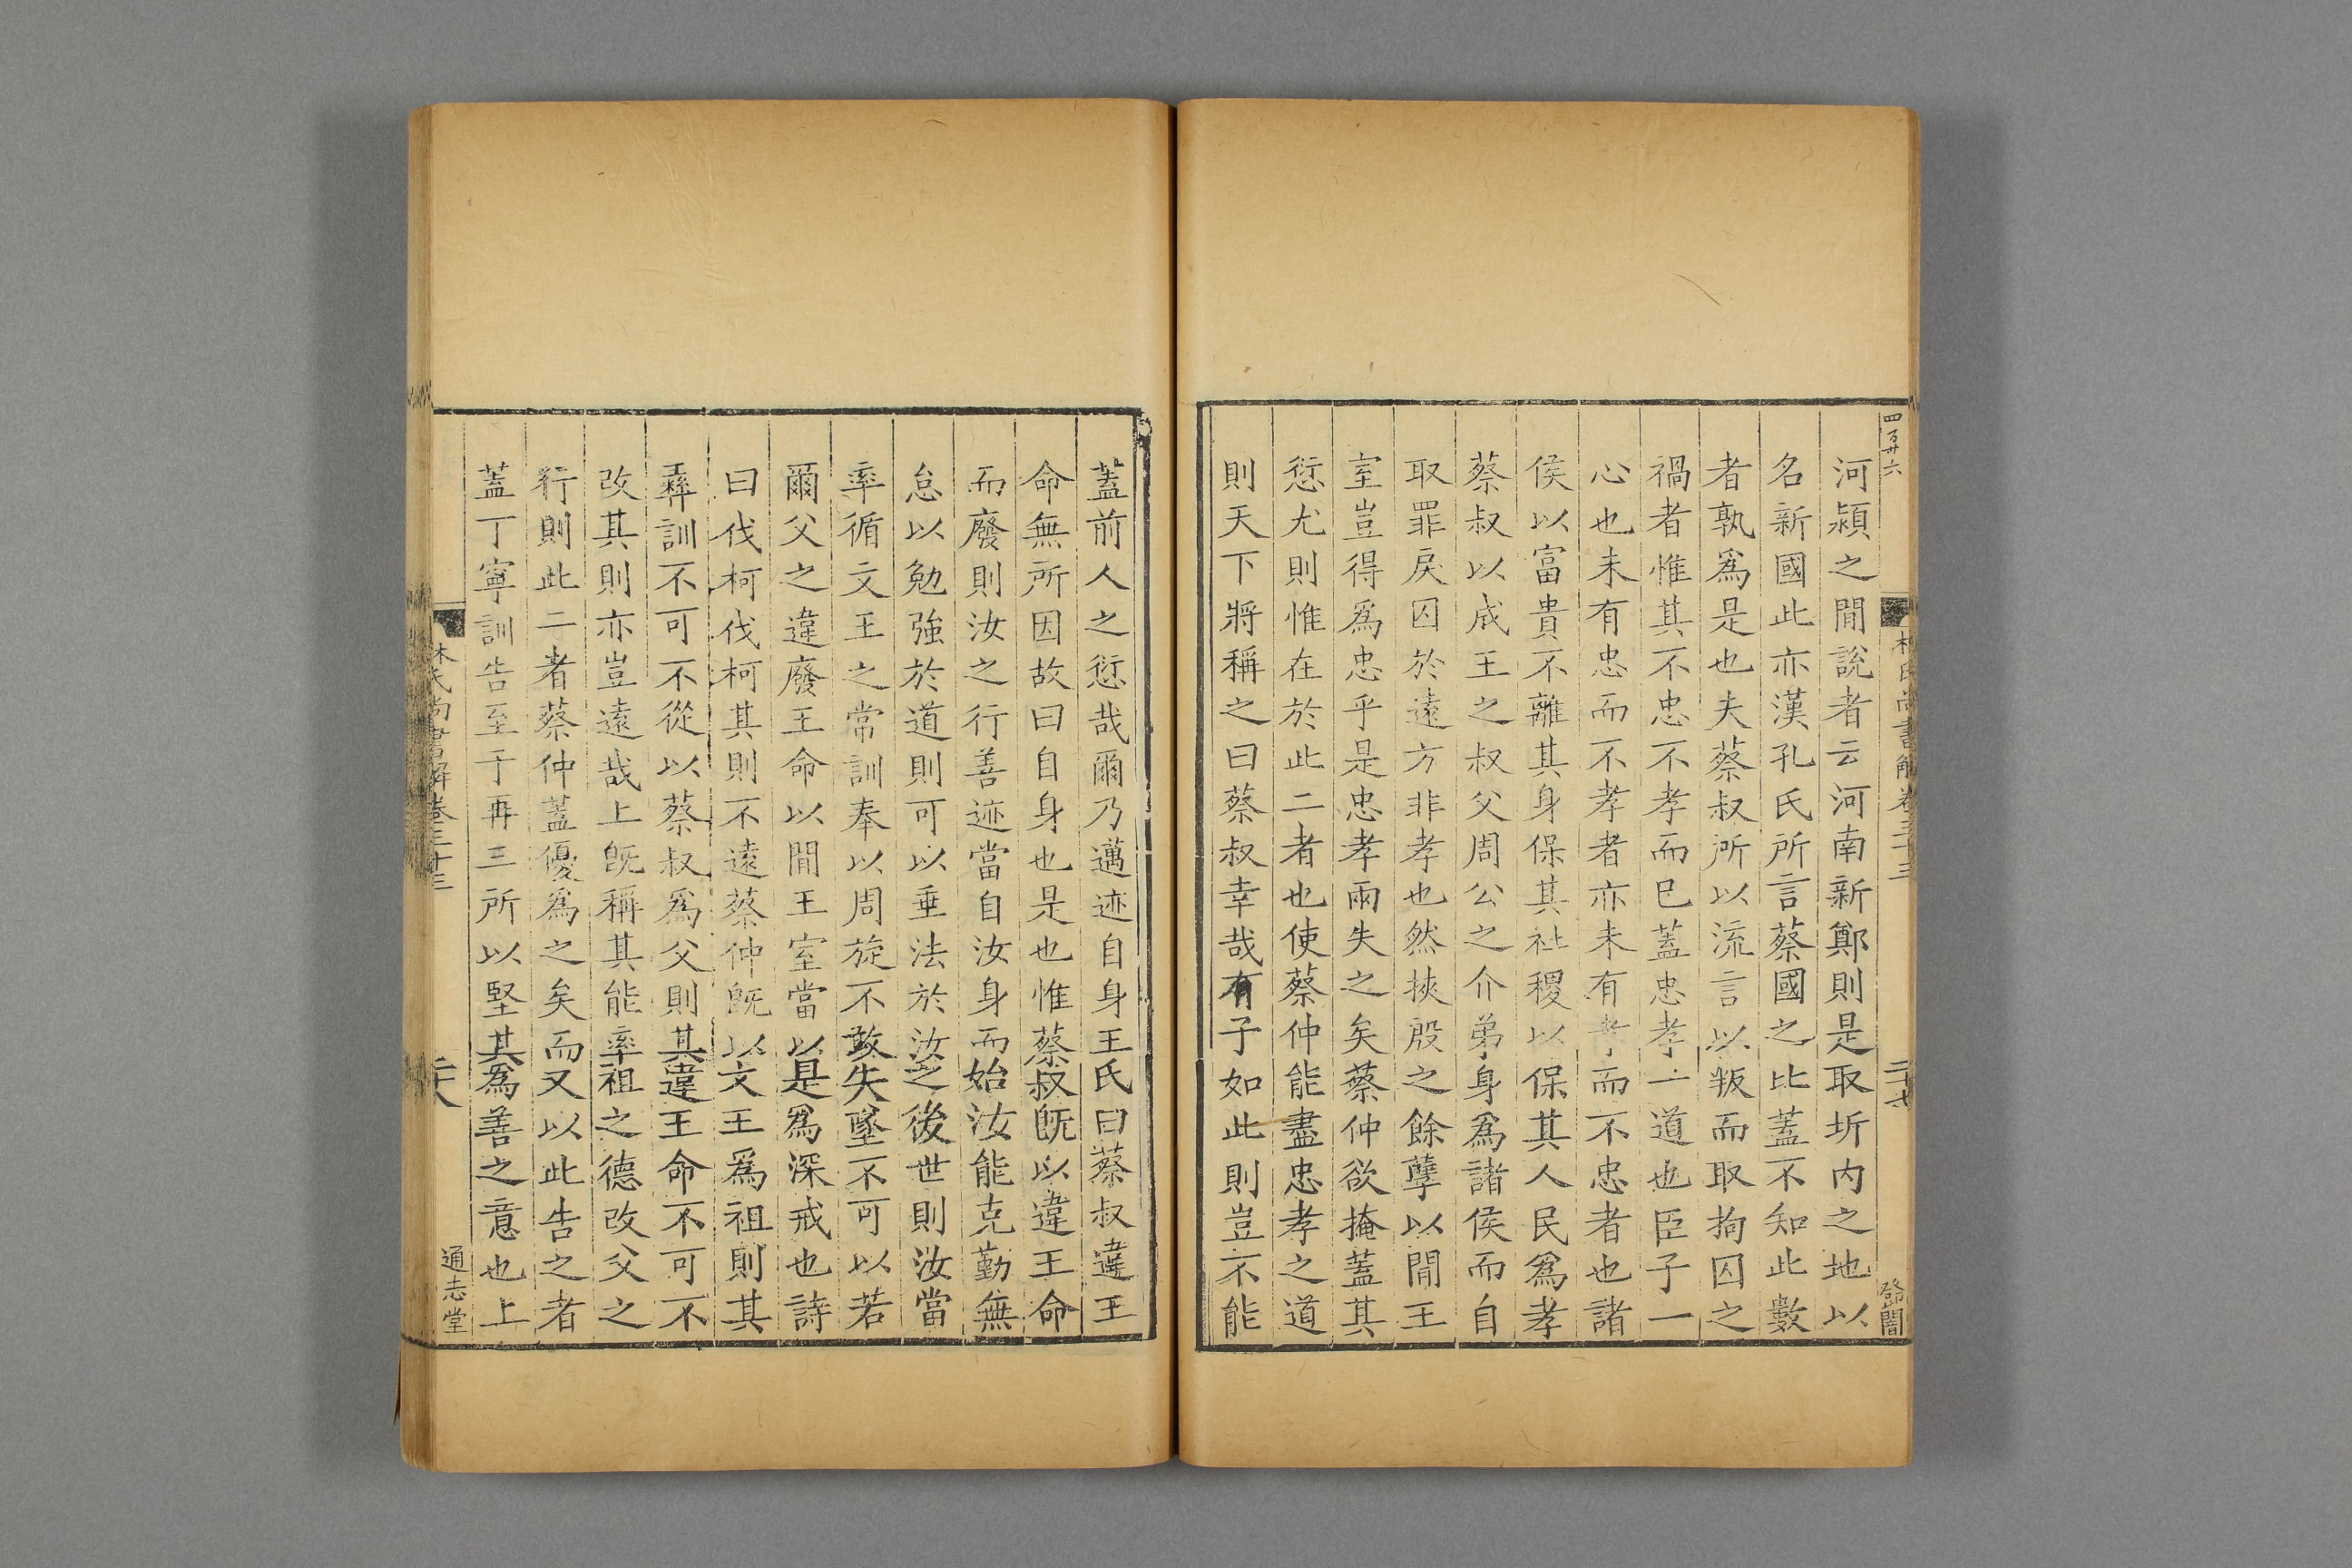 四百廿六
林氏尚書解卷三十三
二十七
河潁之閒說者云河南新鄭則是取圻内之地以
名新國此亦漢孔氏所言蔡國之比蓋不知此數
者孰爲是也夫蔡叔所以流言以叛而取拘囚之
禍者惟其不忠不孝而已蓋忠孝一道也臣子一
心也未有忠而不孝者亦未有孝而不忠者也諸
侯以富貴不離其身保其社稷以保其人民爲孝
蔡叔以成王之叔父周公之介弟身爲諸侯而自
取罪戾囚於遠方非孝也然挾殷之餘孽以閒王
室豈得爲忠乎是忠孝兩失之矣蔡仲欲掩蓋其
愆尤則惟在於此二者也使蔡仲能盡忠孝之道
則天下將稱之曰蔡叔幸哉有子如此則豈不能
蓋前人之愆哉爾乃邁迹自身王氏曰蔡叔違王
命無所因故曰自身也是也惟蔡叔旣以違王命
而廢則汝之行善迹當自汝身而始汝能克勤無
怠以勉強於道則可以垂法於汝之後世則汝當
率循文王之常訓奉以周旋不敢失墜不可以若
爾父之違廢王命以閒王室當以是爲深戒也詩
曰伐柯伐柯其則不遠蔡仲旣以文王爲祖則其
彝訓不可不從以蔡叔爲父則其違王命不可不
改其則亦豈遠哉上旣稱其能率祖之德改父之
行則此二者蔡仲蓋優爲之矣而又以此告之者
蓋丁寧訓告至于再三所以堅其爲善之意也上
林氏尚書解卷三十三
二十八
通志堂